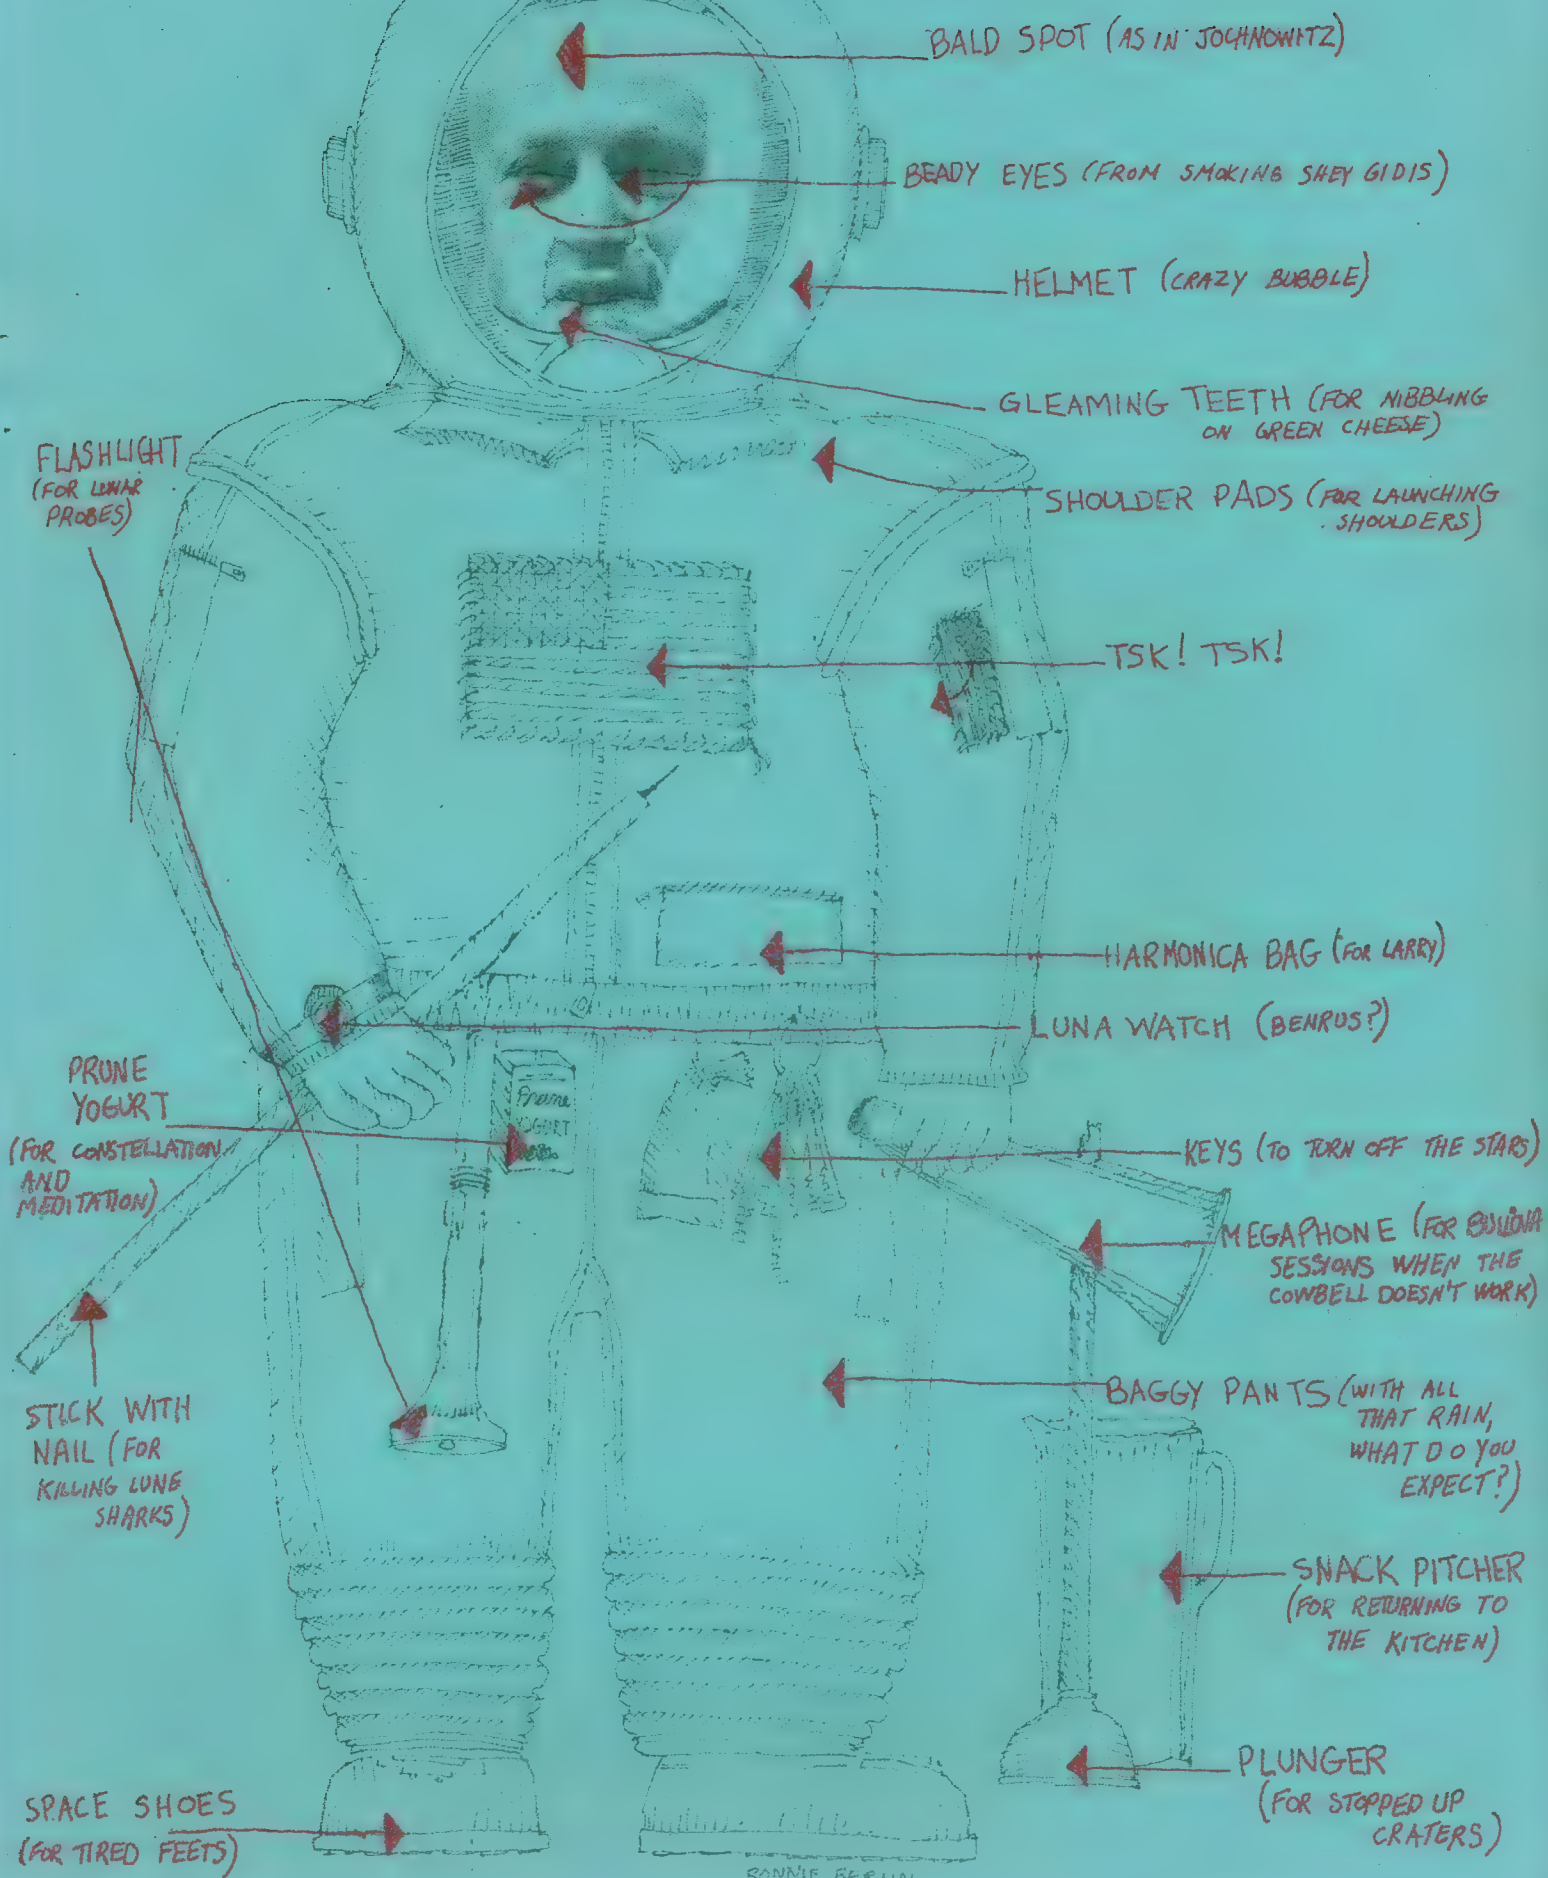 BALD SPOT (AS IN JOCHNOWITZ)
BEADY EYES (FROM SMOKING SHEY GIDIS)
HELMET (CRAZY BUBBLE)
GLEAMING TEETH (FOR NIBBLING
ON GREEN CHEESE)
FLASHLIGHT
(FOR LUNAR
PROBES)
SHOULDER PADS (FOR LAUNCHING
SHOULDERS)
TSK! TSK!
HARMONICA BAG (FOR LARRY)
LUNA WATCH (BENRUS?)
PRUNE
YOGURT
(FOR CONSTELLATION
AND
MEDITATION)
Prune
YOGURT
KEYS (TO TURN OFF THE STARS)
MEGAPHONE (FOR BULLOVA
SESSIONS WHEN THE
COWBELL DOESN'T WORK)
BAGGY PANTS (WITH ALL
THAT RAIN,
WHAT DO YOU
EXPECT?)
STICK WITH
NAIL (FOR
KILLING LUNE
SHARKS)
SNACK PITCHER
(FOR RETURNING TO
THE KITCHEN)
PLUNGER
(FOR STOPPED UP
CRATERS)
SPACE SHOES
(FOR TIRED FEETS)